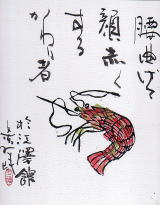 腰曲げて
顔赤く
する
かわり者
於江澤館